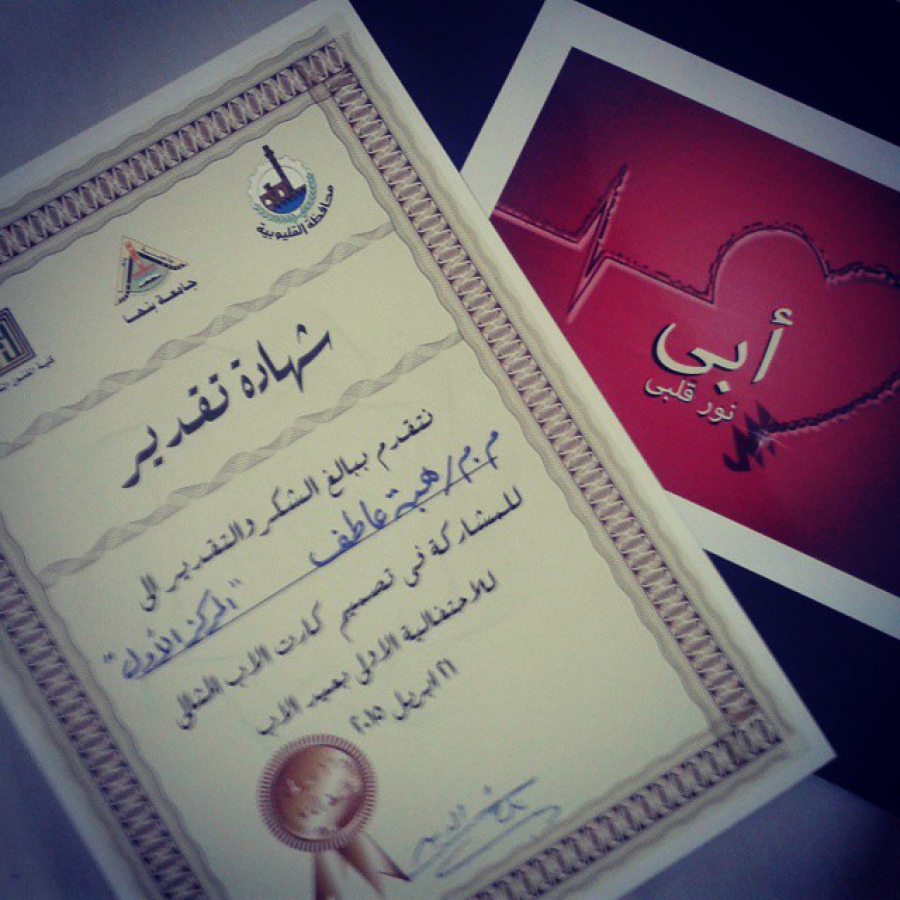 محافظة القليوبية
جامعة بنها
شهادة تقدير
نتقدم ببالغ الشكر والتقدير الى
م.م/هبة عاطف "المركز الأول"
للمشاركة فى تصميم كارت الاب المثالي
للاحتفالية الاولى بعيد الاب
٢١ ابريل ٢٠١٥
أبى
نور قلبى